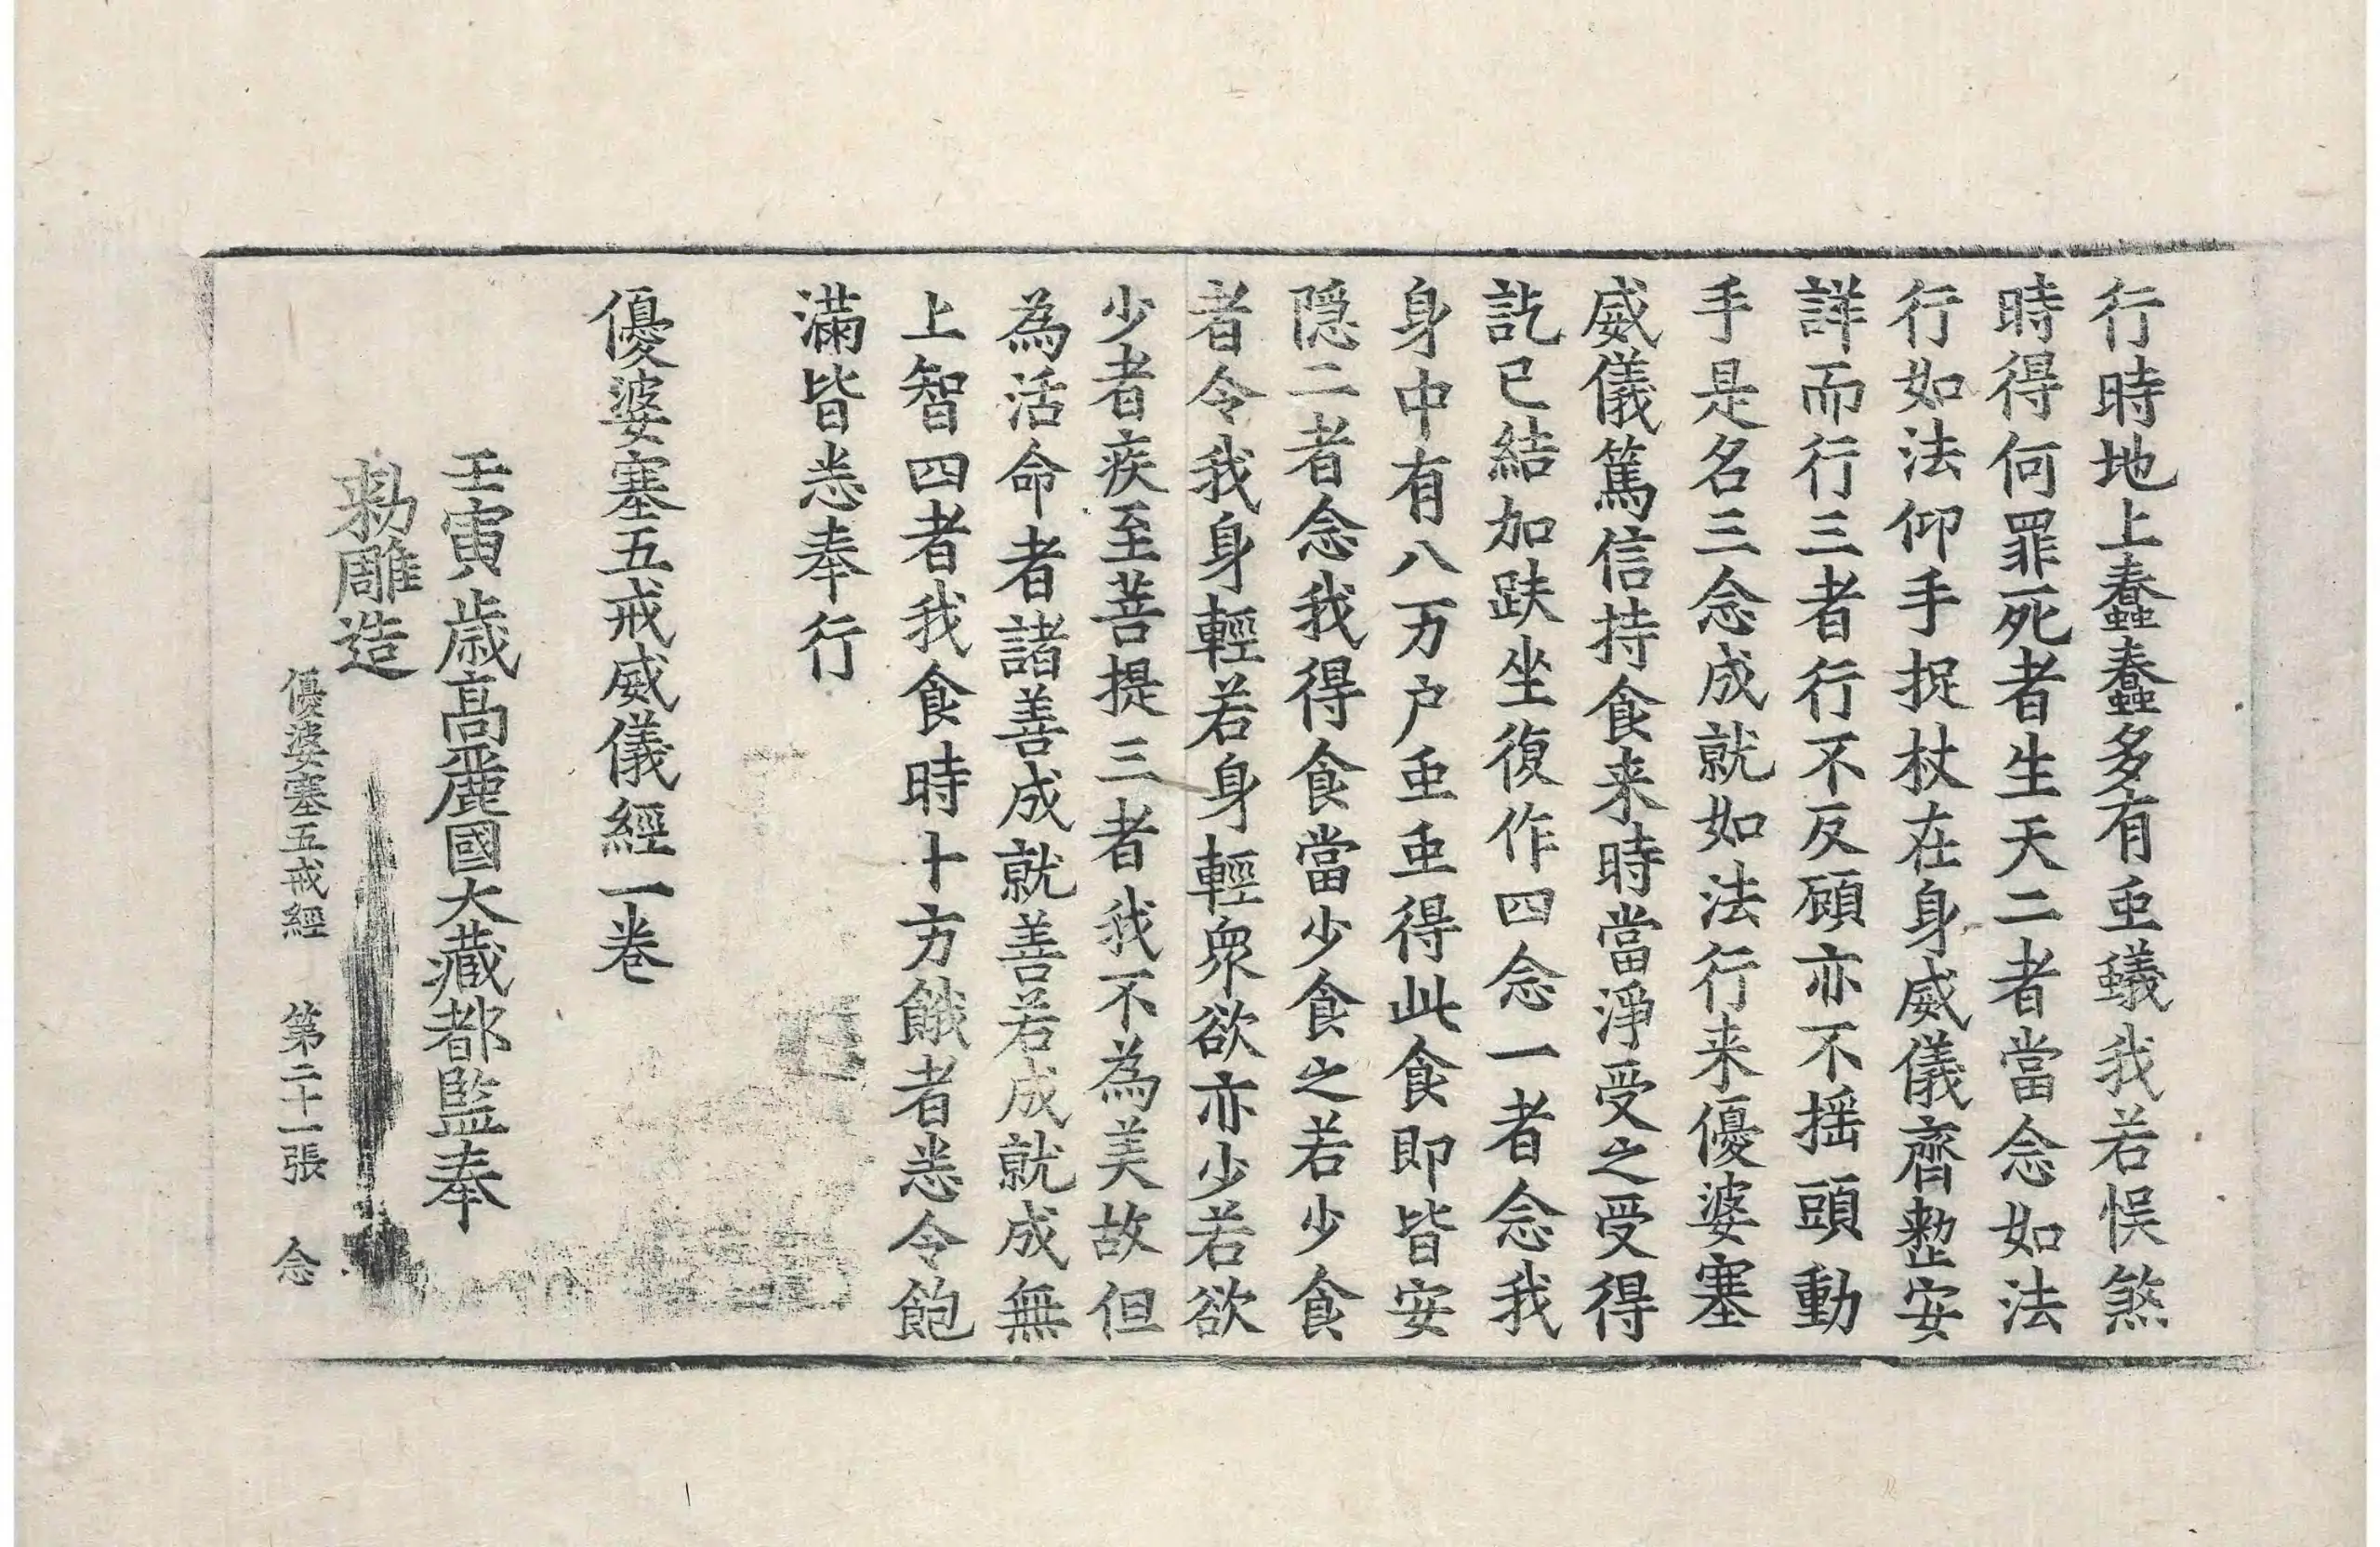 行時地上蠢蠢多有䖝蟻我若悮煞
時得何罪死者生天二者當念如法
行如法仰手捉杖在身威儀齊整安
詳而行三者行不反顧亦不揺頭動
手是名三念成就如法行来優婆塞
威儀篤信持食来時當淨受之受得
訖已結加趺坐復作四念一者念我
身中有八万户䖝䖝得此食即皆安
隠二者念我得食當少食之若少食
者令我身輕若身輕衆欲亦少若欲
少者疾至菩提三者我不為美故但
為活命者諸善成就善若成就成無
上智四者我食時十方餓者悉令飽
滿皆悉奉行
優婆塞五戒威儀經一卷
壬寅歳高麗國大藏都監奉
勑雕造
優婆塞五戒經 第二十一張 念